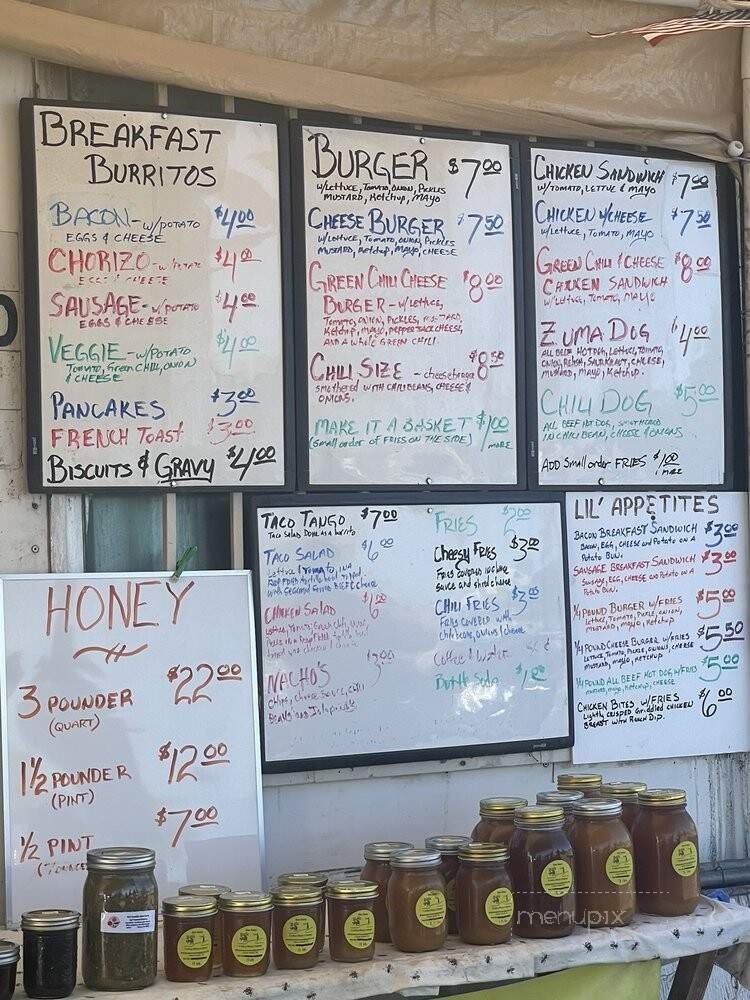 BREAKFAST
BURRITOS
BACON - W/POTATO $4.00
EGGS & CHEESE
CHORIZO - W/POTATO $4.00
EGGS & CHEESE
SAUSAGE - W/POTATO $4.00
EGGS & CHEESE
VEGGIE - W/POTATO $4.00
TOMATO, Green CHILI, ONION
& CHEESE
PANCAKES $3.00
FRENCH TOAST $3.00
BISCUITS & GRAVY $4.00
BURGER $7.00
W/Lettuce, Tomato, ONION, PICKLES
MUSTARD, Ketchup, MAYO
CHEESE BURGER $7.50
W/Lettuce, Tomato, ONION, PICKLES
MUSTARD, Ketchup, MAYO, CHEESE
GREEN CHILI CHEESE $8.00
BURGER - W/Lettuce,
Tomato, ONION, PICKLES, MUSTARD,
Ketchup, mayo, pepperjack cheese,
AND A whole GREEN CHILI
CHILI SIZE - cheeseburger $8.50
smothered WITH CHILI BEANS, CHEESE &
ONIONS.
MAKE IT A BASKET $1.00
(Small order of FRIES ON THE SIDE) MORE
CHICKEN SANDWICH $7.00
W/TOMATO, LETTUCE & MAYO
CHICKEN W/CHEESE $7.50
W/Lettuce, TOMATO, MAYO
GREEN CHILI & CHEESE $8.00
CHICKEN SANDWICH
W/Lettuce, TOMATO, MAYO
ZUMA DOG $4.00
ALL BEEF HOTDOG, Lettuce, TOMATO,
ONION, RELISH, SAUERKRAUT, CHEESE,
MUSTARD, MAYO, Ketchup.
CHILI DOG $5.00
ALL BEEF HOT DOG, SMOTHERED
IN CHILI BEAN, CHEESE & ONIONS
ADD Small order FRIES $1.00
MORE
TACO TANGO $7.00
Taco Salad Done as a burrito
TACO SALAD $6.00
Lettuce & Tomato, in a
CHICKEN SALAD $6.00
NACHO'S $3.00
Chips, cheese sauce, chili
Beans and Jalapeños
FRIES $2.00
CHEESY FRIES $3.00
Fries covered in cheese
sauce and shred cheese
CHILI FRIES $3.00
Fries covered with
chili beans, onions & cheese
Coffee & Water
Bottle Soda
LIL' APPETITES
BACON BREAKFAST SANDWICH $3.00
BACON, EGG, CHEESE AND Potato ON A
Potato BUN.
SAUSAGE BREAKFAST SANDWICH $3.00
Sausage, EGG, CHEESE AND Potato ON A
Potato BUN.
1/4 POUND BURGER W/FRIES $5.00
Lettuce, Tomato, Pickle, ONION,
mustard, mayo, Ketchup
1/4 POUND CHEESE BURGER W/FRIES $5.50
Lettuce, Tomato, PICKLE, ONIONS, CHEESE
MUSTARD, MAYO, KETCHUP
1/4 POUND ALL BEEF HOT DOG W/FRIES $5.00
mustard, mayo, Ketchup, CHEESE
CHICKEN BITES W/FRIES $6.00
Lightly CRISPED GRIDDLED CHICKEN
BREAST WITH RANCH DIP.
HONEY
3 POUNDER $22.00
(QUART)
1 1/2 POUNDER $12.00
(PINT)
1/2 PINT $7.00
menupix